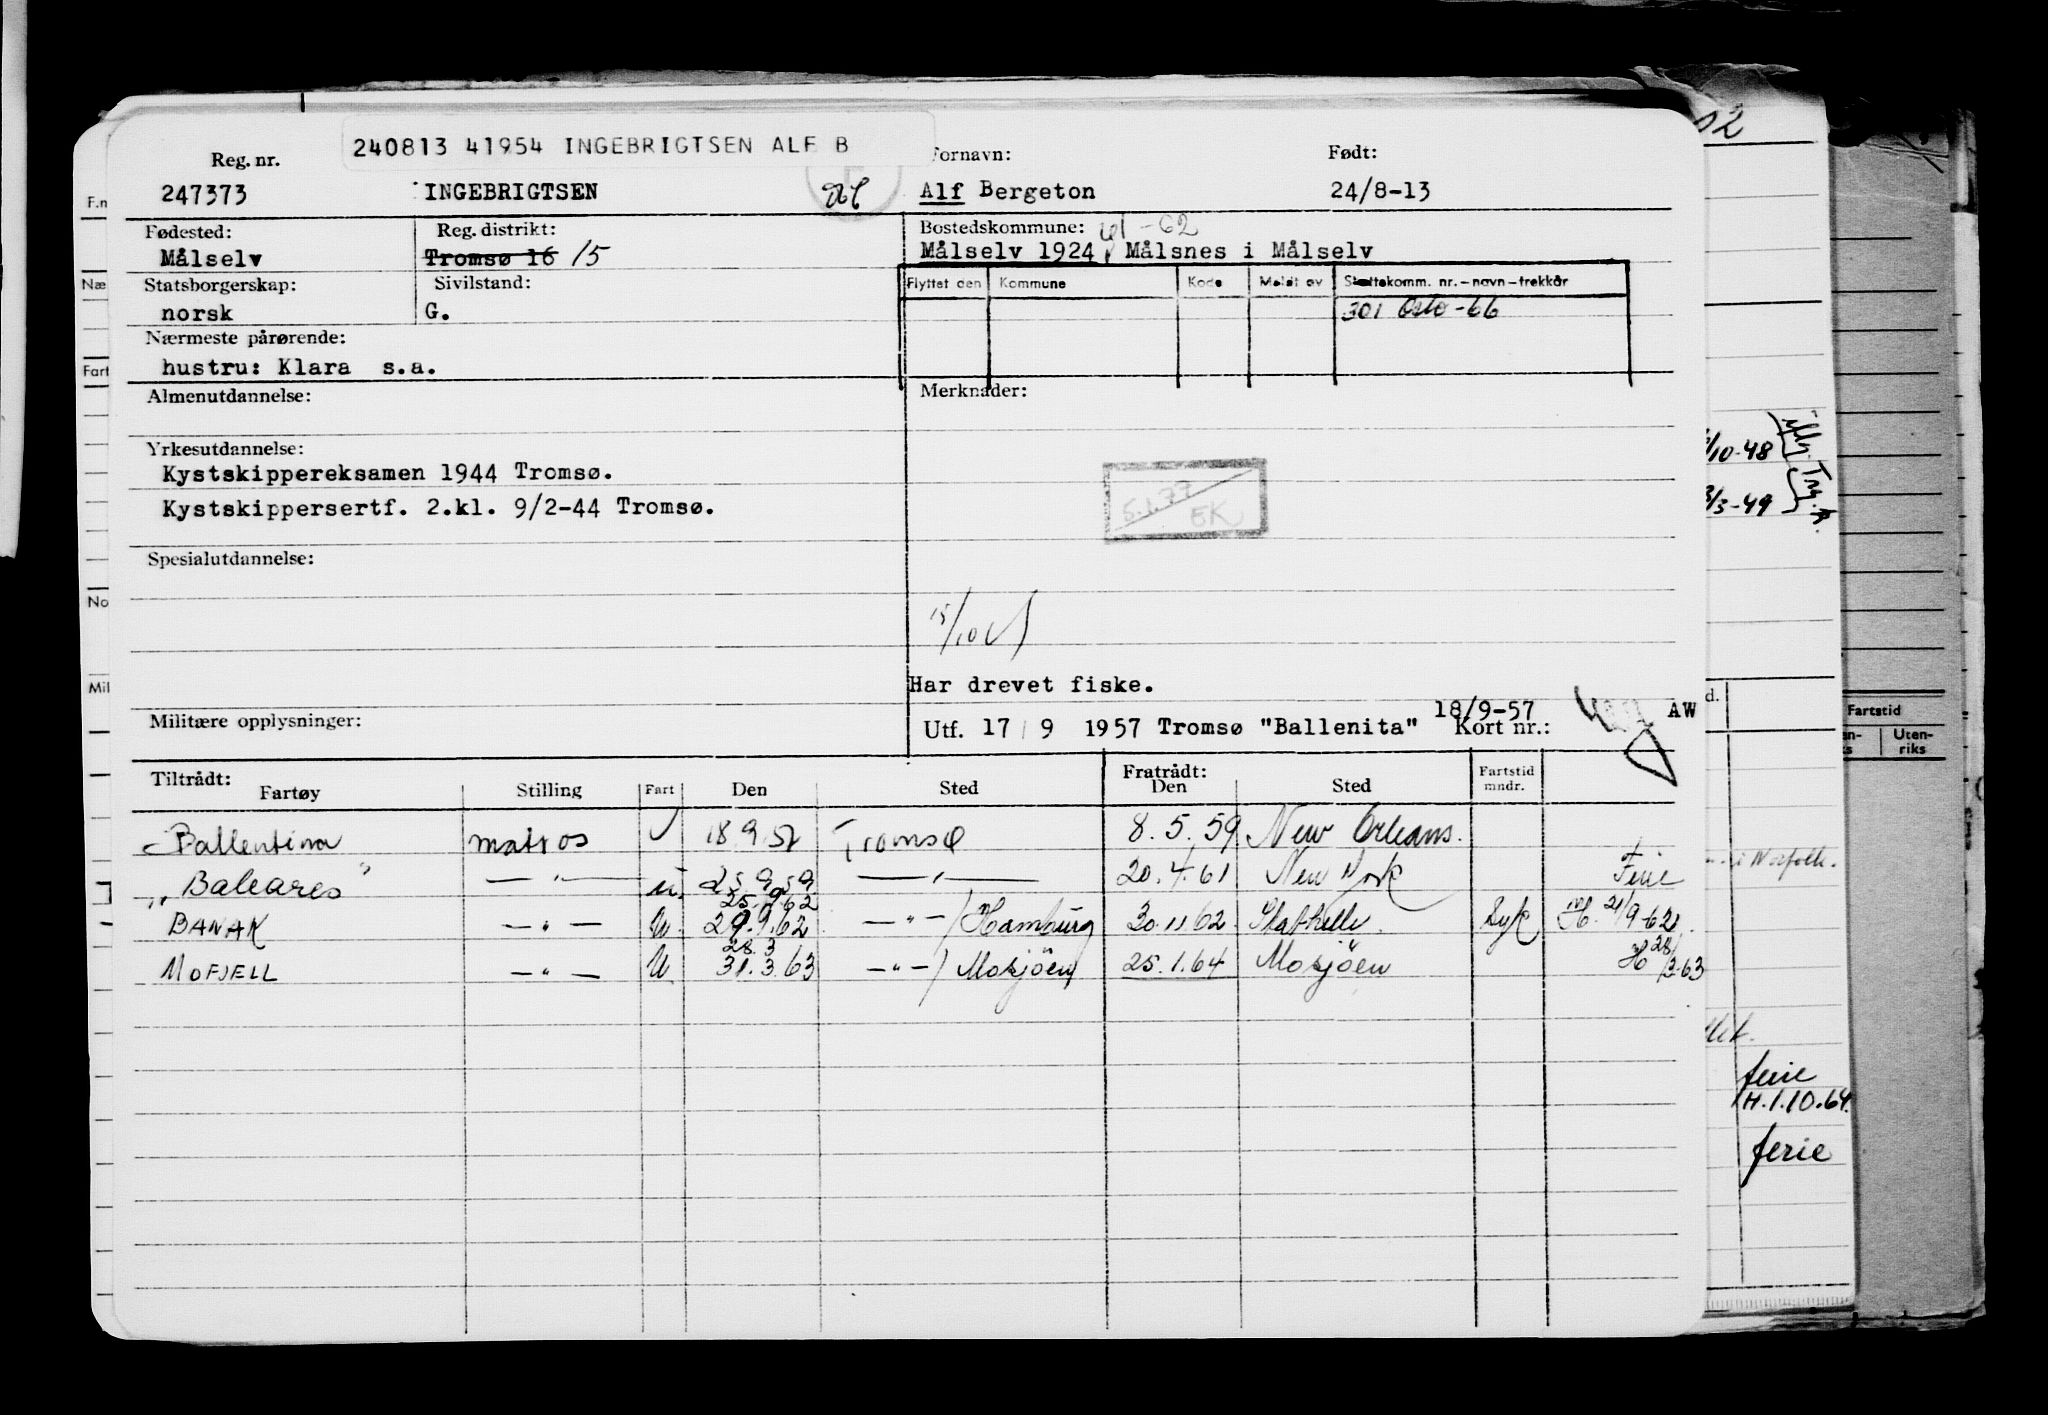 240813 41954 INGEBRIGTSEN ALF B
Reg. nr. Fornavn: Født:
247373 INGEBRIGTSEN Alf Bergeton 24/8-13
Fødested: Reg. distrikt: Bostedskommune: 61-62
Målselv Tromsø 16 15 Målselv 1924, Målsnes i Målselv
Statsborgerskap: Sivilstand: Flyttet den Kommune Kode Meldt av Skattekomm. nr.-navn-trekkår
norsk G. 301 Oslo-66
Nærmeste pårørende:
hustru: Klara s.a.
Almenutdannelse: Merknader:
Yrkesutdannelse:
Kystskippereksamen 1944 Tromsø.
Kystskippersertf. 2.kl. 9/2-44 Tromsø.
5.1.77
EK
Spesialutdannelse:
15/10
Har drevet fiske.
Militære opplysninger: Utf. 17/9 1957 Tromsø "Ballenita" 18/9-57 Kort nr.: AW
Tiltrådt: Fratrådt:
Fartøy Stilling Fart Den Sted Den Sted Fartstid mndr.
Ballentina matros 18.9.57 Tromsø 8.5.59 New Orleans.
"Baleares" — " — u. 25.9.59 — " — 20.4.61 New York Ferie
25.9.62
BANAK — " — U. 29.9.62 — " — / Hamburg 30.11.62 Stathelle. Syk H. 21/9-62
28.3
MOFJELL — " — U 31.3.63 — " — / Mosjöen 25.1.64 Mosjöen H 28/3-63
F.n
Næ
Fart
No
Mil
52
/10-48
/3-49
d.
Fartstid
Uten-
riks
i Norfolk.
ferie
H.1.10.64.
ferie